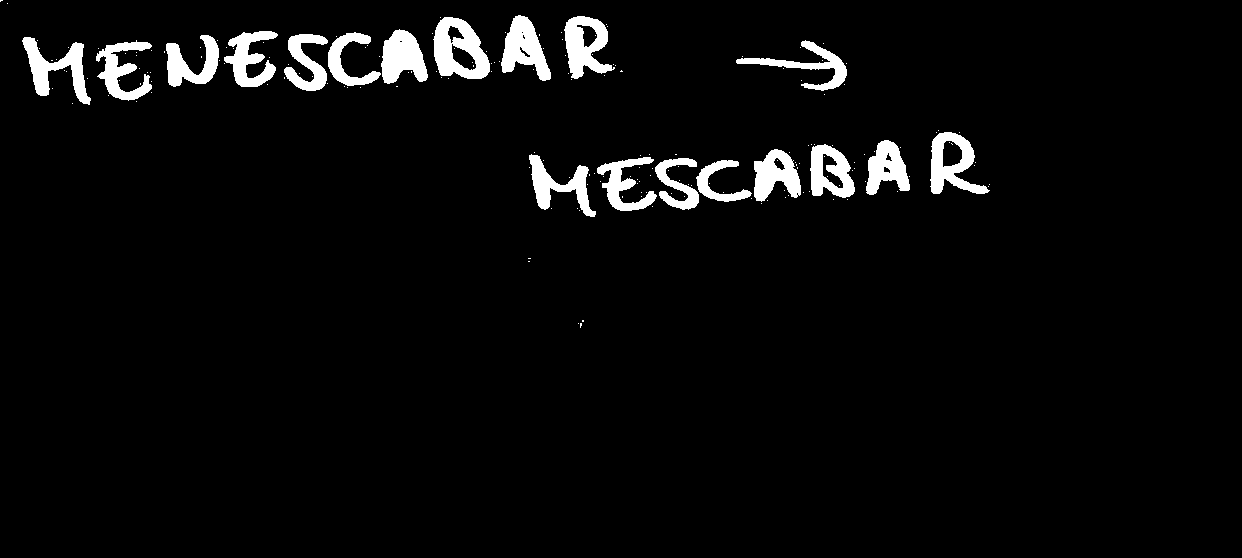 MENESCABAR →
MESCABAR